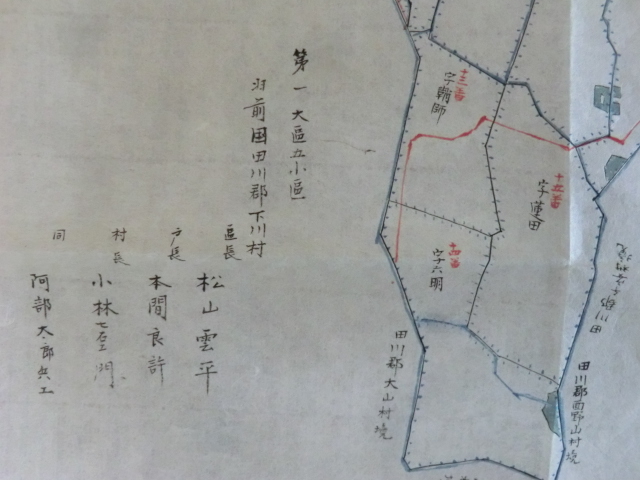 第一大區五小區
羽前国田川郡下川村
區長
松山雲平
戸長
本間良許
村長
小林七左エ門
同
阿部太郎兵エ
十三番
字鞘師
十五番
字蓮田
十四番
字六明
田川郡大山村境
田川郡西野山村境